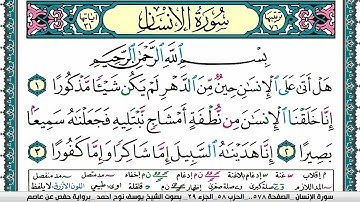 سُورَةُ الإِنسَانِ
بِسْمِ اللَّهِ الرَّحْمَٰنِ الرَّحِيمِ
هَلْ أَتَىٰ عَلَى الْإِنسَٰنِ حِينٌ مِّنَ الدَّهْرِ لَمْ يَكُن شَيْـًٔا مَّذْكُورًا ١
إِنَّا خَلَقْنَا الْإِنسَٰنَ مِن نُّطْفَةٍ أَمْشَاجٍ نَّبْتَلِيهِ فَجَعَلْنَٰهُ سَمِيعًۢا
بَصِيرًا ٢ إِنَّا هَدَيْنَٰهُ السَّبِيلَ إِمَّا شَاكِرًا وَإِمَّا كَفُورًا ٣
سورة الإنسان - الصفحة ٥٧٨ - الحزب ٥٨ - الجزء ٢٩ - بصوت الشيخ يوسف نوح احمد - برواية حفص عن عاصم